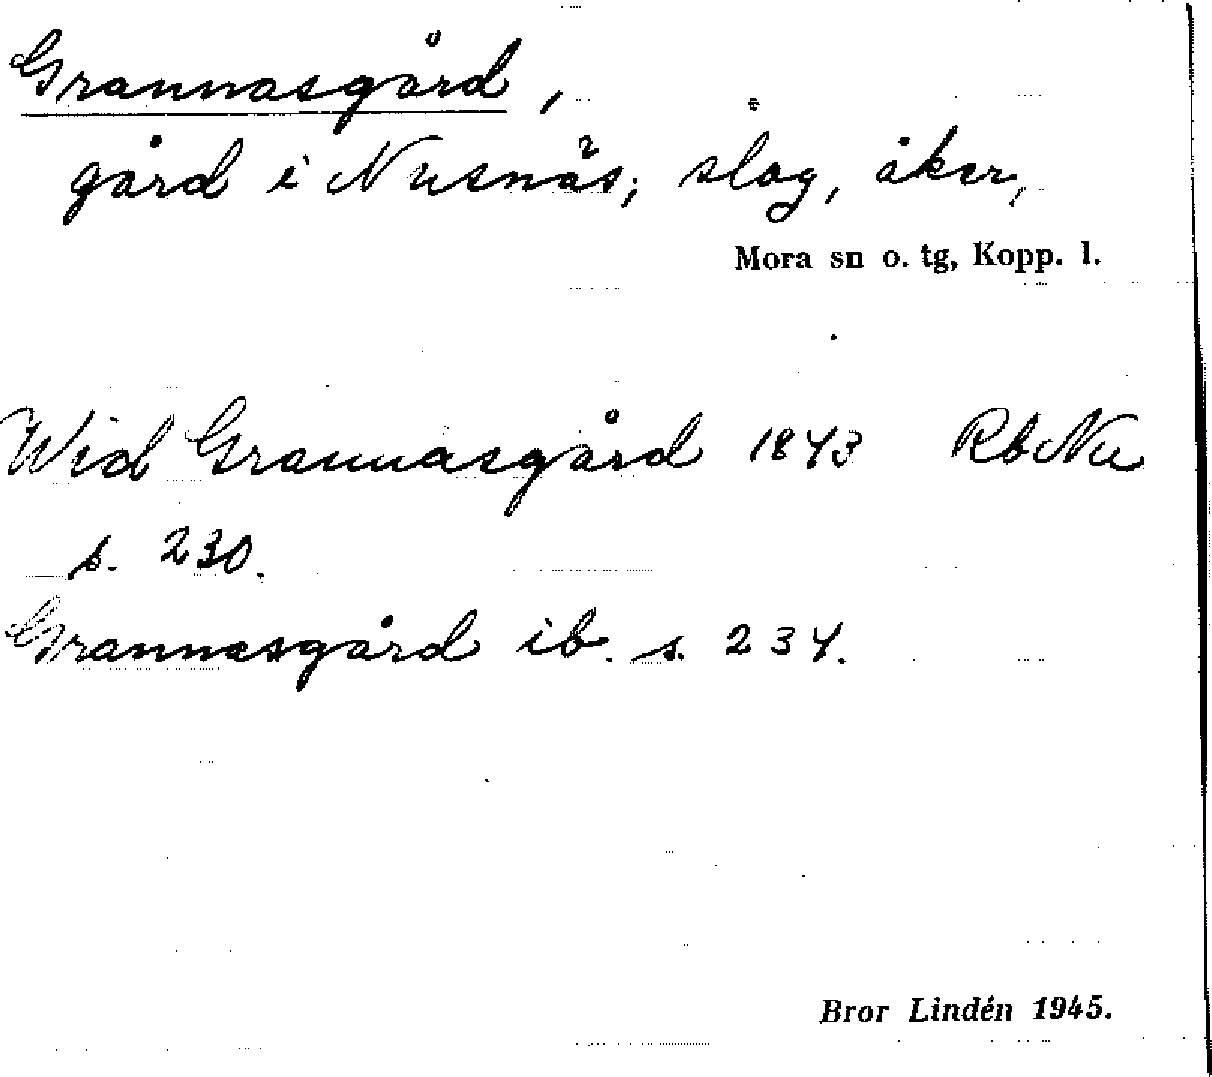 Grannasgård,
gård i Nusnäs; slog, åker,
Mora sn o. tg, Kopp. l.
Wid Grannasgård 1843 RbNu
s. 230.
Grannasgård ib. s. 234.
Bror Lindén 1945.